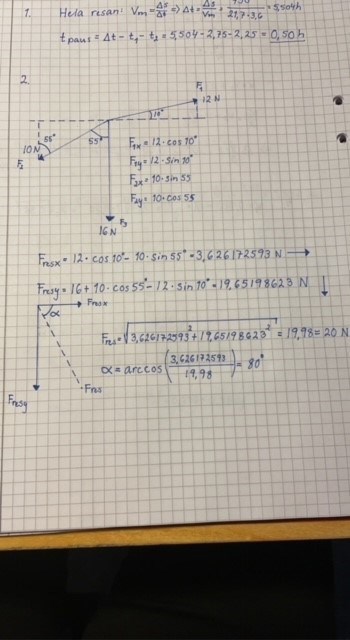 1. Hela resan: Vm = Δs/Δt => Δt = Δs/Vm = /21,7·3,6 = 5,504h
tpaus = Δt - t₁ - t₂ = 5,504 - 2,75 - 2,25 = 0,50h
2.
F₁
12 N
10°
55°
55°
10N
F₂
F₁x = 12·cos 10°
F₁y = 12·sin 10°
F₂x = 10·sin 55
F₂y = 10·cos 55
F₃
16 N
Fresx = 12·cos 10° - 10·sin 55° = 3,626172593 N →
Fresy = 16 + 10·cos 55° - 12·sin 10° = 19,65198623 N ↓
Fresx
α
Fres = √(3,626172593² + 19,65198623²) = 19,98 = 20 N
α = arccos(3,626172593/19,98) = 80°
Fres
Fresy